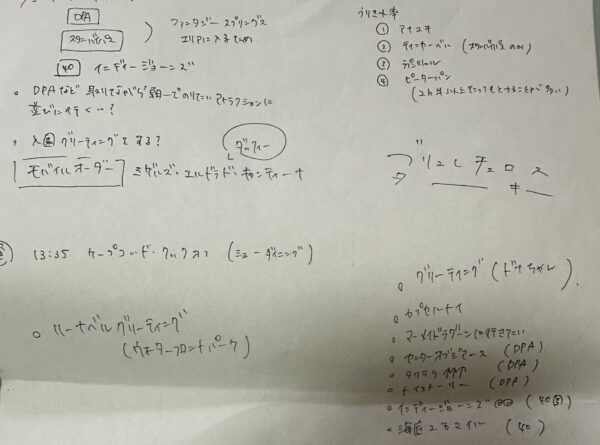 DPA
スタンバイパス
ファンタジー スプリングス
エリアに入るため
40 インディージョーンズ
DPAなど 取りながら 朝一で のりたいアトラクションに
並びに行く…?
グリーティングする?
ダッフィー
モバイルオーダー ミゲルズ・エルドラド・キャンティーナ
13:35 ケープコッド・クックオフ (ショーダイニング)
ハーバベルグリーティング
(ウォーターフロントパーク)
① アナエサ
② ティンカーベル (スタンバイパスのみ)
③ ラプンツェル
④ ピーターパン
チュロス
グリーティング (ドナちゃん)
カプセルトイ
マーメイドラグーンに行きたい
センターオブジアース (DPA)
タワテラ (DPA)
トイストーリー (DPA)
インディージョーンズ (40)
海底2万マイル (40)